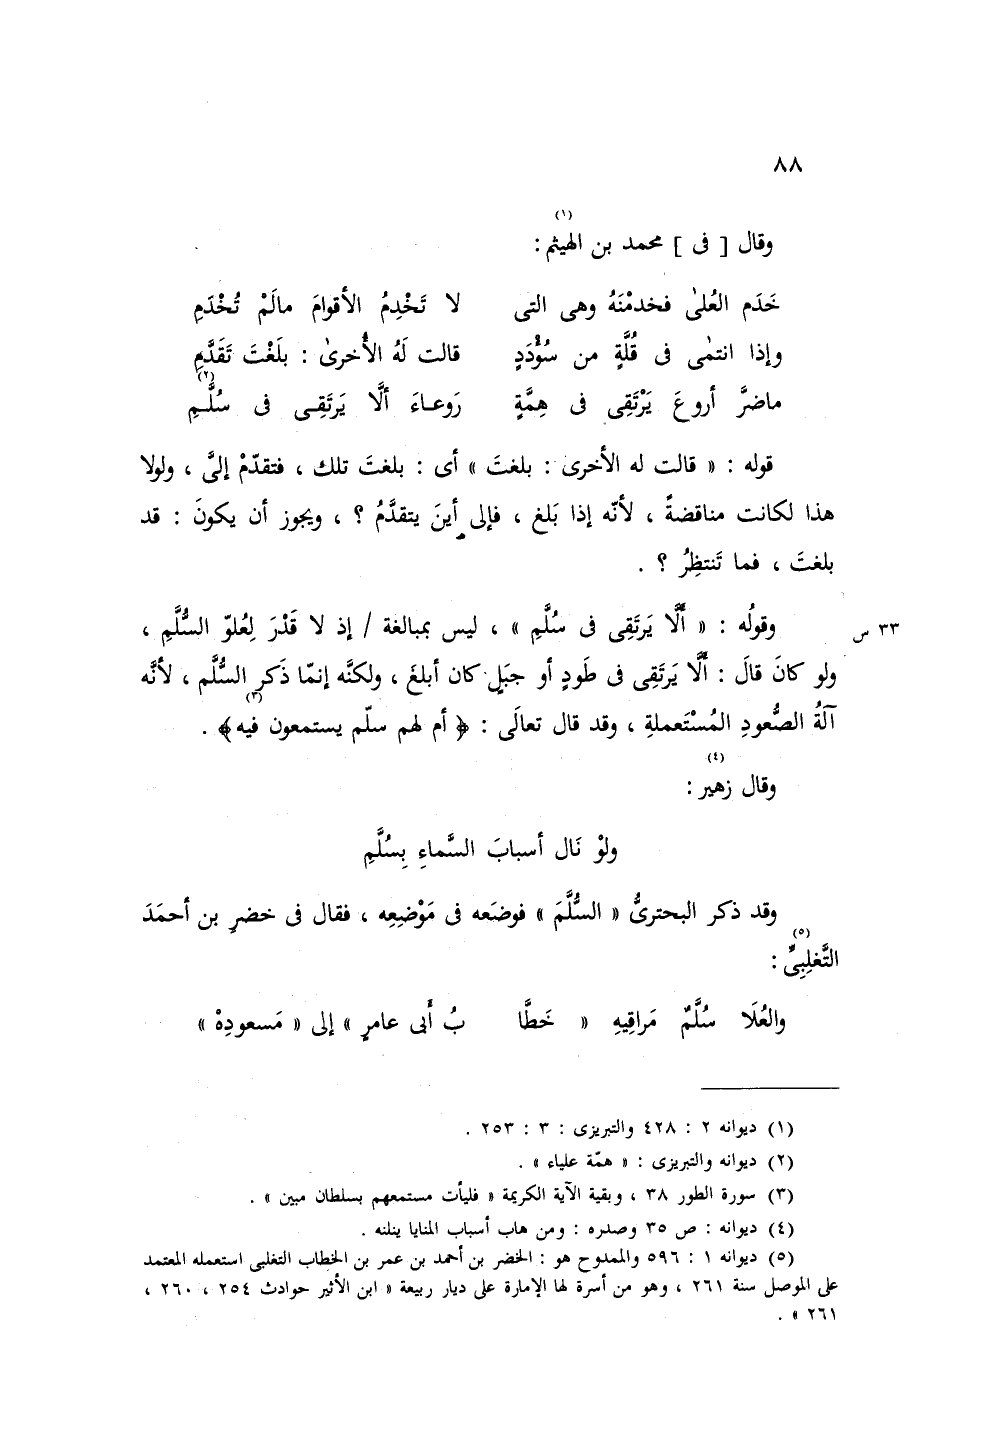 ٨٨
وقال [ فى ] محمد بن الهيثم(١) :
خَدَم العُلىٰ فخدمْنَهُ وهى التى لا تَخْدِمُ الأقوامَ مالَمْ تُخْدَمِ
وإذا انتمٰى فى قُلَّةٍ من سُؤْدَدٍ قالت لَهُ الأُخرىٰ : بلَغْتَ تَقَدَّمِ
ماضرَّ أروعَ يَرْتَقِى فى هِمَّةٍ رَوعاءَ ألَّا يَرتَقِى فى سُلَّمِ(٢)
قوله : « قالت له الأخرى : بلغتَ » أى : بلغتَ تلك ، فتقدّمْ إلىَّ ، ولولا
هذا لكانت مناقضةً ، لأنّه إذا بَلغ ، فإلى أينَ يتقدَّمُ ؟ ، ويجوز أن يكونَ : قد
بلغتَ ، فما تَنتظِرُ ؟ .
وقولُه : « أَلَّا يَرتَقِى فى سُلَّمِ » ، ليس بمبالغة / إذ لا قَدْرَ لِعُلوّ السُّلَّمِ ، ٣٣ س
ولو كانَ قالَ : أَلَّا يَرتَقِى فى طَودٍ أو جبَلٍ كان أبلغَ ، ولكنَّه إنمّا ذَكر السُّلَّم ، لأنَّه
آلةُ الصُّعودِ المُسْتَعملةِ ، وقد قال تعالَى : ﴿ أم لهم سلّم يستمعون فيه(٣)﴾ .
وقال زهير(٤) :
ولوْ نَال أسبابَ السَّماءِ بِسُلَّمِ
وقد ذكر البحترىُّ « السُّلَّمَ » فوضَعه فى مَوْضِعِه ، فقال فى خضرِ بن أحمَدَ
التَّغلِبِىِّ(٥) :
والعُلَا سُلَّمٌ مَراقِيهِ « خَطَّا بُ أَبى عامرٍ » إلى « مَسعودِهْ »
(١) ديوانه ٢ : ٤٢٨ والتبريزى : ٣ : ٢٥٣ .
(٢) ديوانه والتبريزى : « همّة علياء » .
(٣) سورة الطور ٣٨ ، وبقية الآية الكريمة « فليأت مستمعهم بسلطان مبين » .
(٤) ديوانه : ص ٣٥ وصدره : ومن هاب أسباب المنايا ينلنه .
(٥) ديوانه ١ : ٥٩٦ والممدوح هو : الخضر بن أحمد بن عمر بن الخطاب التغلبى استعمله المعتمد
على الموصل سنة ٢٦١ ، وهو من أسرة لها الإمارة على ديار ربيعة « ابن الأثير حوادث ٢٥٤ ، ٢٦٠ ،
٢٦١ » .